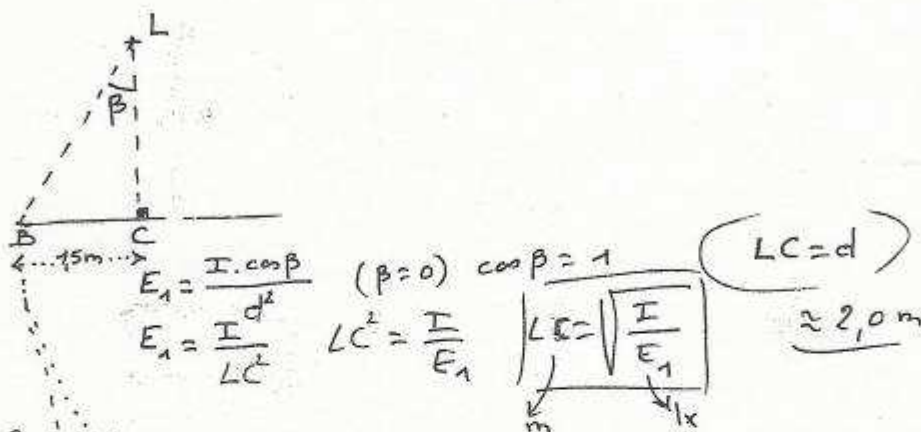 L
β
B C
1,5m
E₁ = I. cos β / d² (β = 0) cos β = 1 LC = d
E₁ = I / LC² LC² = I / E₁ LC = √(I / E₁) ≈ 2,0 m
m lx